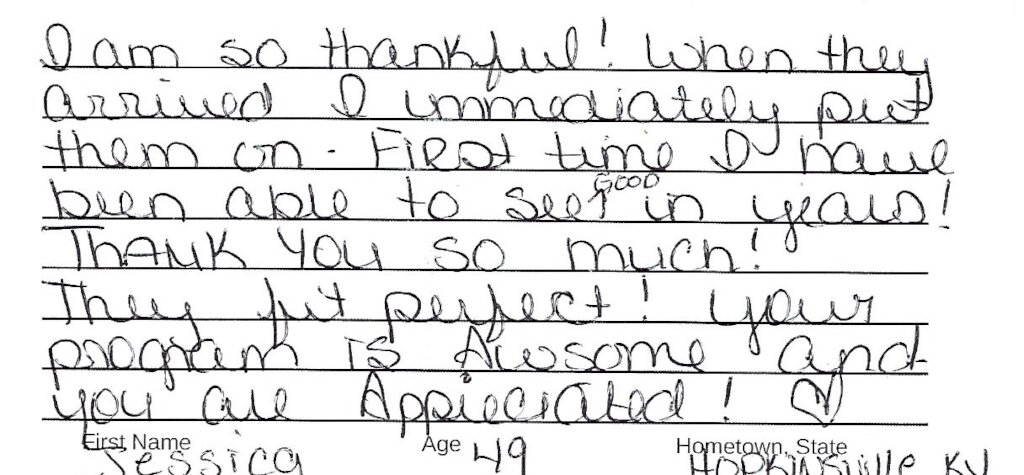 I am so thankful! When they
arrived I immediately put
them on. First time I have
been able to see GOOD in years!
Thank you so much!
They fit perfect! Your
program is Awsome and
you are Appreciated! ♡
First Name Age Hometown, State
Jessica 49 Hopkinsville, KY